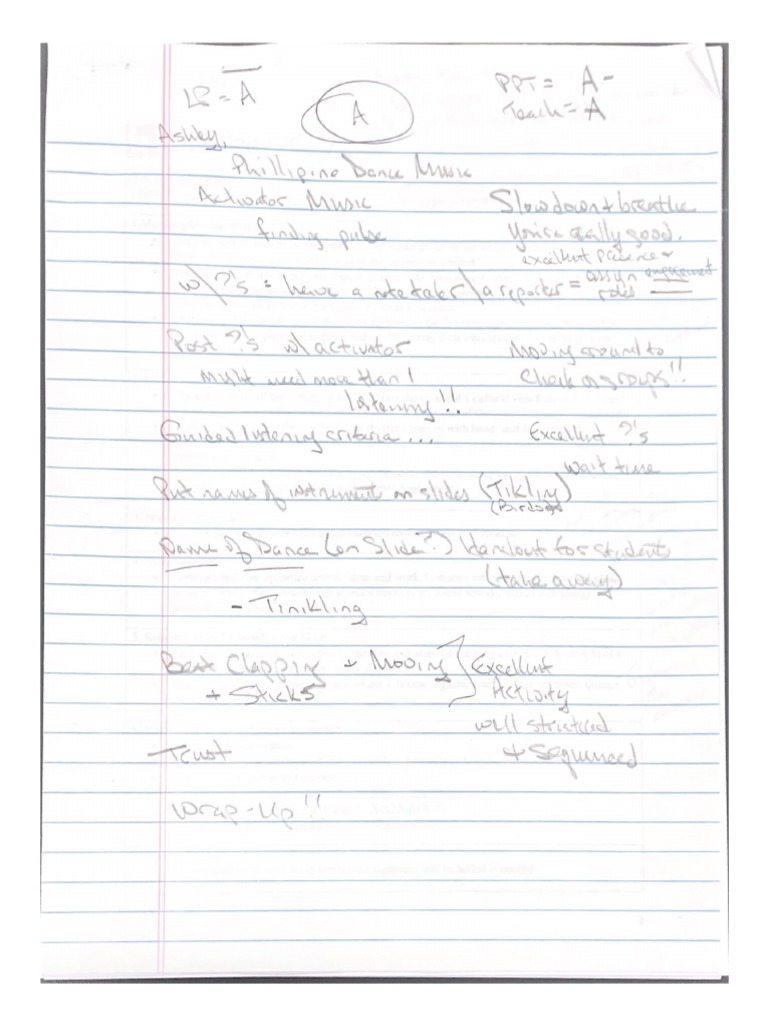 LP = A
A
PPT = A-
Teach = A
Ashley,
Phillipine Dance Music
Activator Music
finding pulse
Slow down + breathe
You're really good.
excellent presence +
engagement
w/ ?'s = have a notetaker \ a reporter = assign roles
Post ?'s w/ activator
might need more than 1
listening!!
Moving around to
check on groups!!
Guided listening criteria ...
Excellent ?'s
wait time
Put names of instrument on slides (Tikling)
Name of Dance (on Slide?) Handout for students
(take away)
- Tinikling
Beat Clapping + Moving
+ Sticks
Excellent
Activity
well
+ Sequenced
Trust
Wrap-Up!!